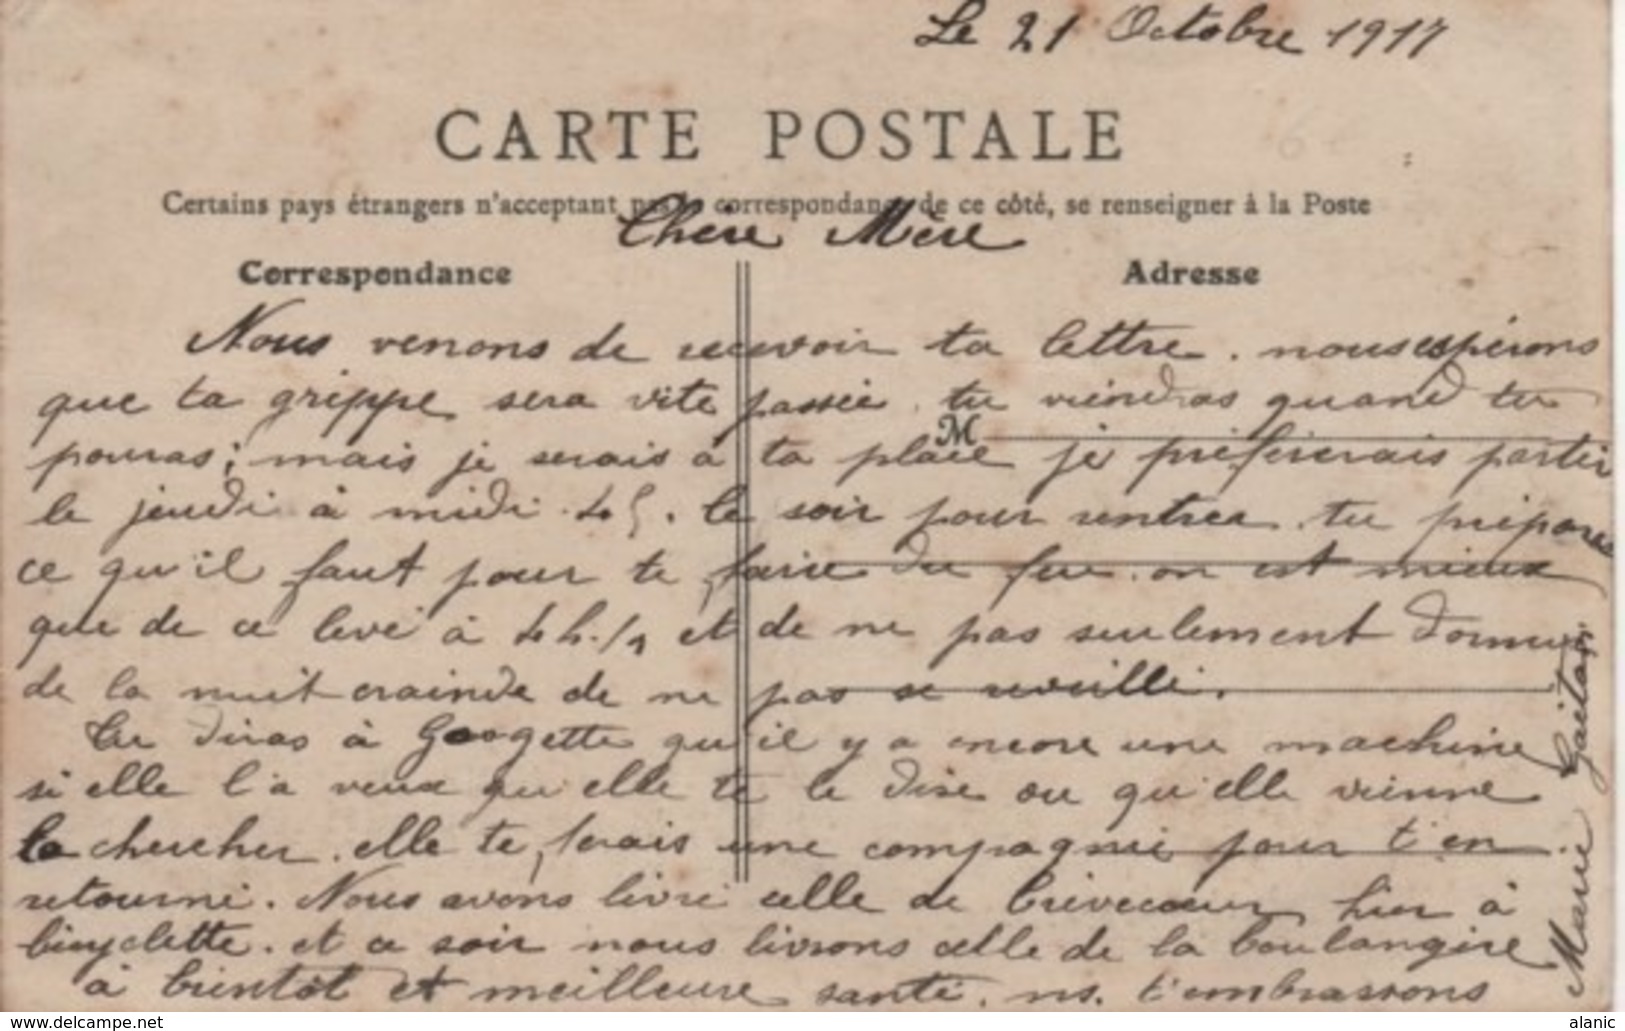 Le 21 Octobre 1917
CARTE POSTALE
Certains pays étrangers n'acceptant pas la correspondance de ce côté, se renseigner à la Poste
Chère Mère
Correspondance
Adresse
Nous venons de recevoir ta lettre. nous espérons
que ta grippe sera vite passée, tu viendras quand tu
M
pouras; mais je serais à ta place je préfèrerais partir
le jeudi à midi le soir pour rentrer tu prépare
ce qu'il faut pour te faire du feu on est mieux
que de ce levé à 4 h. et de ne pas seulement dormir
de la nuit crainde de ne pas se reveillé.
Tu diras à Georgette qu'il y a encore une machine
si elle l'a veux qu'elle te le dise ou qu'elle vienne
la chercher. elle te ferais une compagnie pour t'en
retourné. Nous avons livré celle de Crèvecoeur hier à
bicyclette. et ce soir nous livrons celle de la boulangère
à bientôt et meilleure santé. ns. t'embrassons
Marie Gaëtan
www.delcampe.net
alanic